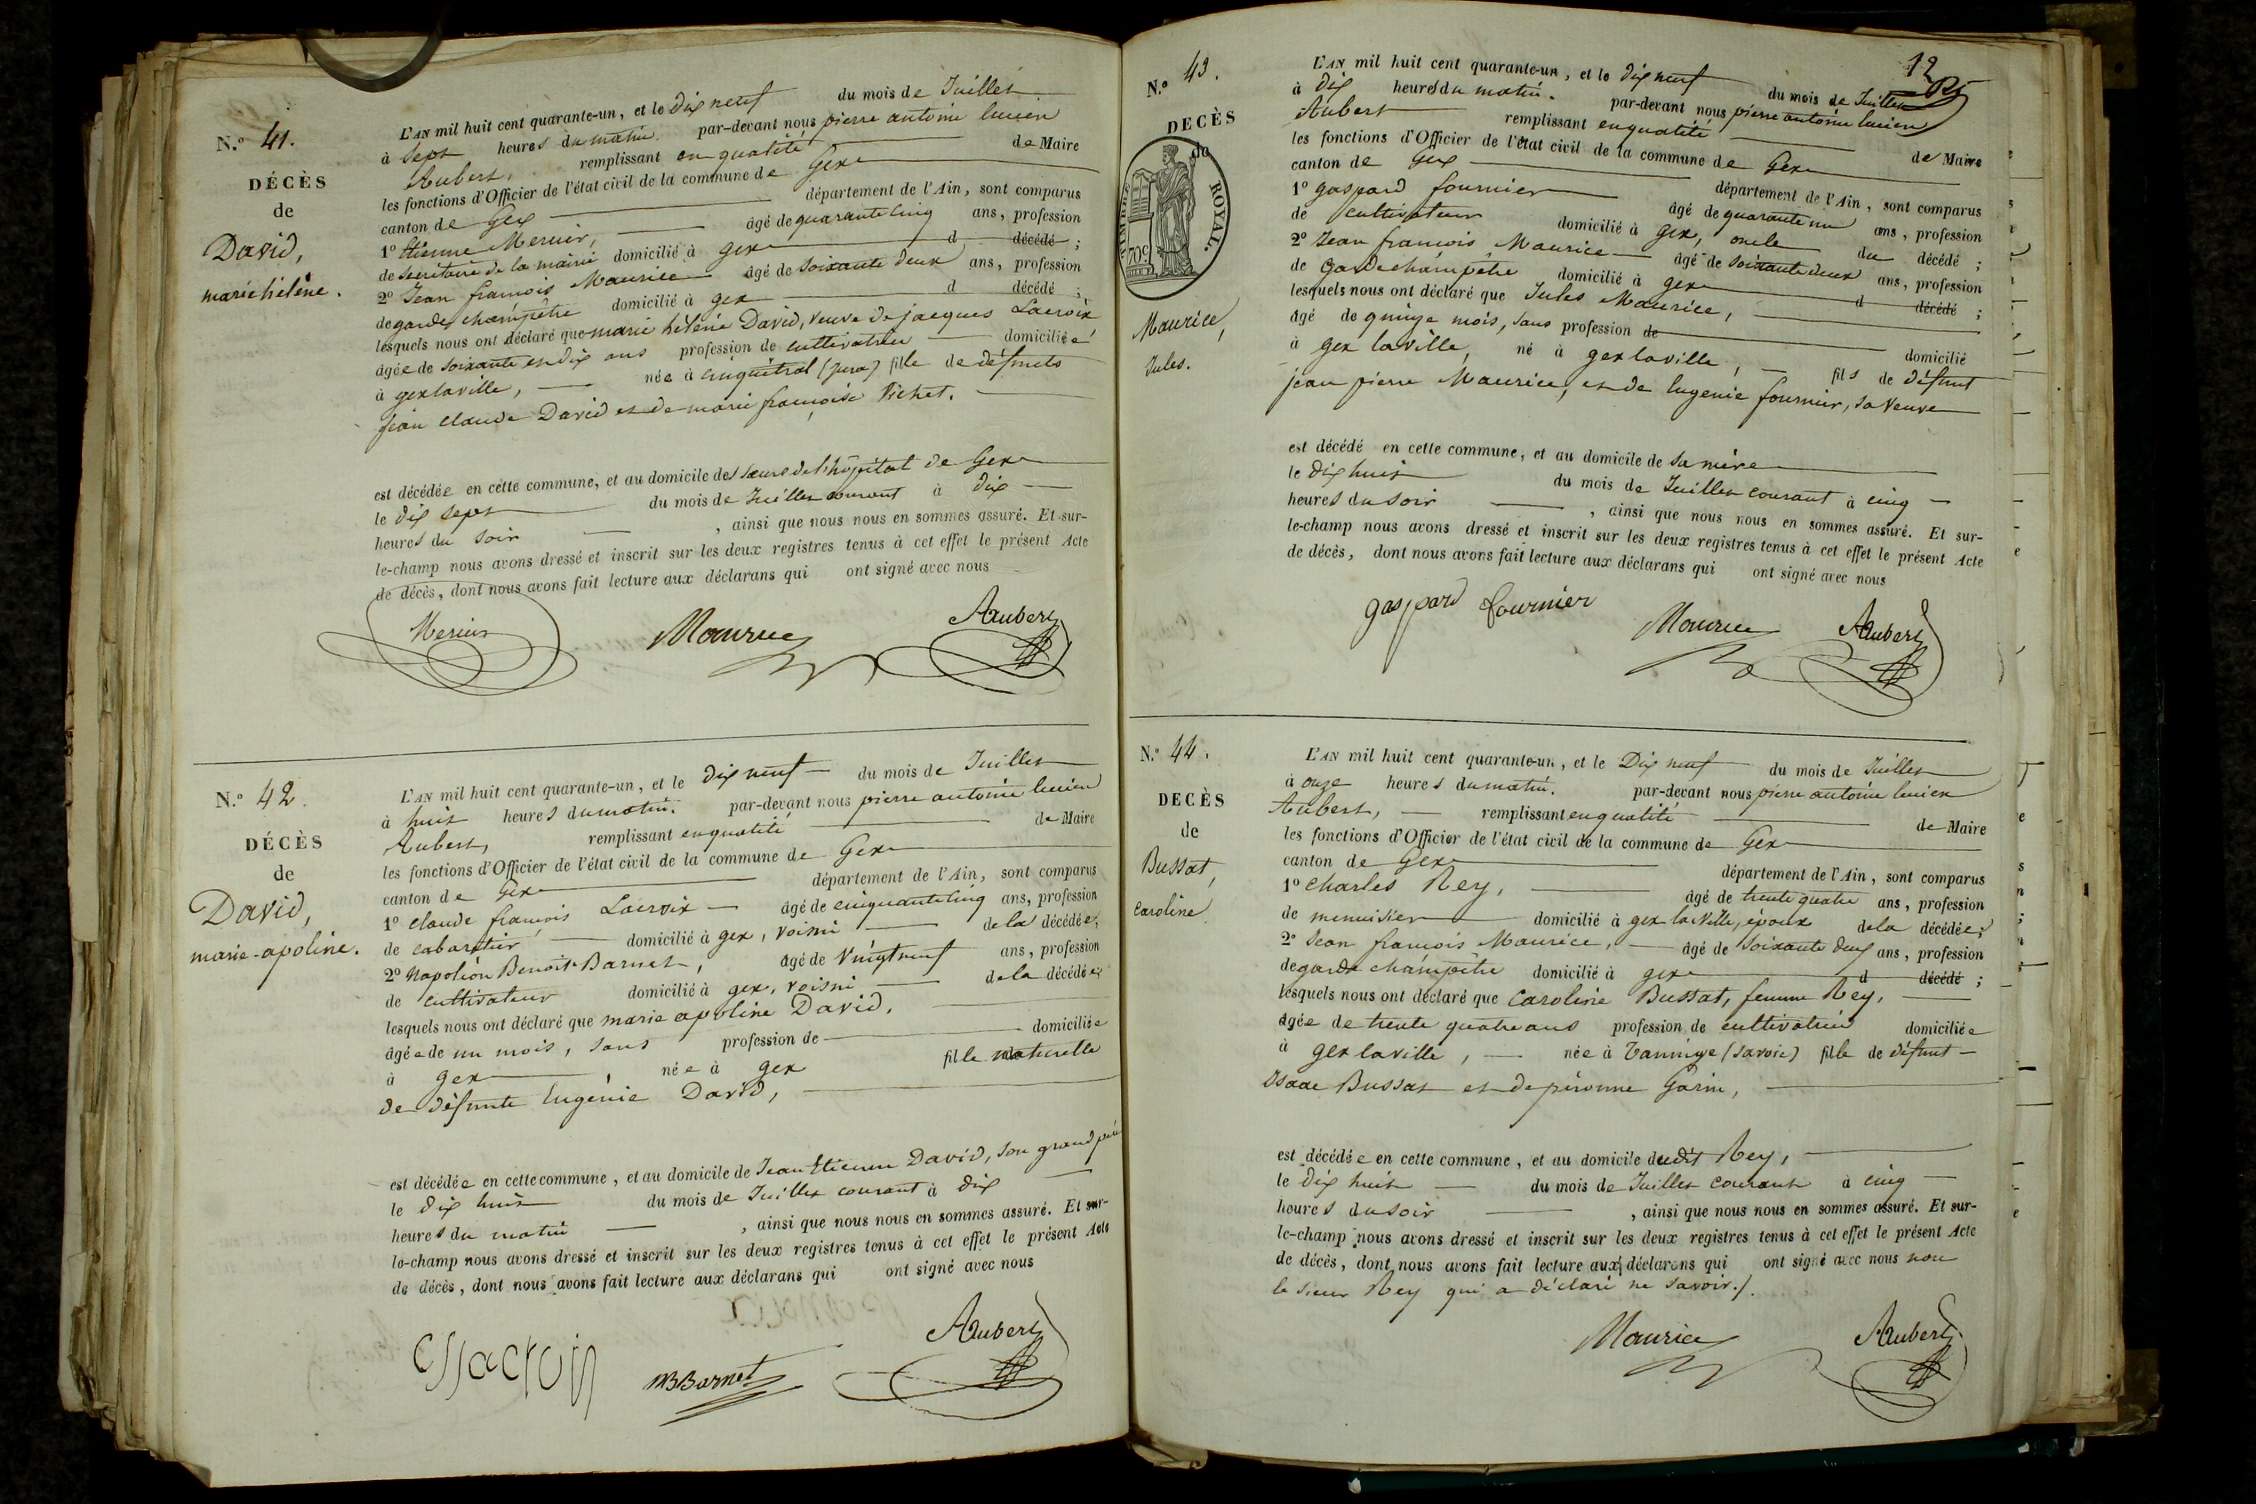 N.º 41.
DÉCÈS
de
David,
marie hélène.
L'AN mil huit cent quarante-un, et le dix neuf du mois de Juillet
à sept heures du matin par-devant nous pierre antoine lucien
Aubert, remplissant en qualité de Maire
les fonctions d'Officier de l'état civil de la commune de Gex
canton de Gex département de l'Ain, sont comparus
1º Etienne Mercier, âgé de quarante cinq ans, profession
de secrétaire de la mairie domicilié à gex d décédé ;
2º Jean françois Maurice âgé de soixante deux ans, profession
de garde champêtre domicilié à gex d décédé ;
lesquels nous ont déclaré que marie hélène David, veuve de jacques Lacroix,
âgée de soixante en dix ans profession de cultivatrice domiciliée
à gex la ville, née à cinquétral (jura) fille de défunts
jean claude David et de marie françoise Vichet.
est décédée en cette commune, et au domicile des sœurs de l'hôpital de Gex
le dix sept du mois de Juillet courant à dix
heures du soir , ainsi que nous nous en sommes assuré. Et sur-
le-champ nous avons dressé et inscrit sur les deux registres tenus à cet effet le présent Acte
de décès, dont nous avons fait lecture aux déclarans qui ont signé avec nous
Mercier Maurice Aubert
N.º 42.
DÉCÈS
de
David,
marie-apoline.
L'AN mil huit cent quarante-un, et le dix neuf du mois de Juillet
à huit heures du matin. par-devant nous pierre antoine lucien
Aubert, remplissant en qualité de Maire
les fonctions d'Officier de l'état civil de la commune de Gex
canton de Gex département de l'Ain, sont comparus
1º claude françois Lacroix âgé de cinquante cinq ans, profession
de cabaretier domicilié à gex, voisin de la décédée;
2º Napoléon Benoit Barnet, âgé de vingt neuf ans, profession
de cultivateur domicilié à gex, voisin de la décédée;
lesquels nous ont déclaré que marie apoline David,
âgée de un mois, sans profession de domiciliée
à gex , née à gex fille naturelle
de défunte Eugénie David,
est décédée en cette commune, et au domicile de Jean Etienne David, son grand père
le dix huit du mois de Juillet courant à dix
heures du matin , ainsi que nous nous en sommes assuré. Et sur-
le-champ nous avons dressé et inscrit sur les deux registres tenus à cet effet le présent Acte
de décès, dont nous avons fait lecture aux déclarans qui ont signé avec nous
Cf lacroix NBBarnet Aubert
12
N.º 43.
DECÈS
de
TIMBRE ROYAL.
70c
Maurice,
Jules.
L'AN mil huit cent quarante-un, et le dix neuf du mois de Juillet
à dix heures du matin. par-devant nous pierre antoine lucien
Aubert remplissant en qualité de Maire
les fonctions d'Officier de l'état civil de la commune de Gex
canton de Gex département de l'Ain, sont comparus
1º gaspard fournier âgé de quarante un ans, profession
de cultivateur domicilié à gex, oncle du décédé ;
2º Jean françois Maurice âgé de soixante deux ans, profession
de garde champêtre domicilié à gex d décédé ;
lesquels nous ont déclaré que Jules Maurice,
âgé de quinze mois, sans profession de domicilié
à gex la ville, né à gex la ville, fils de défunt
jean pierre Maurice, et de Eugenie fournier, sa veuve
est décédé en cette commune, et au domicile de sa mère
le dix huit du mois de Juillet courant à cinq
heures du soir , ainsi que nous nous en sommes assuré. Et sur-
le-champ nous avons dressé et inscrit sur les deux registres tenus à cet effet le présent Acte
de décès, dont nous avons fait lecture aux déclarans qui ont signé avec nous
gaspard fournier Maurice Aubert
N.º 44.
DECÈS
de
Bussat,
Caroline
L'AN mil huit cent quarante-un, et le Dix neuf du mois de Juillet
à onze heures du matin. par-devant nous pierre antoine lucien
Aubert, remplissant en qualité de Maire
les fonctions d'Officier de l'état civil de la commune de Gex
canton de Gex département de l'Ain, sont comparus
1º charles Rey, âgé de trente quatre ans, profession
de menuisier domicilié à gex la ville, époux de la décédée;
2º Jean françois Maurice, âgé de soixante deux ans, profession
de garde champêtre domicilié à gex d décédé ;
lesquels nous ont déclaré que Caroline Bussat, femme Rey,
âgée de trente quatre ans profession de cultivatrice domiciliée
à gex la ville, née à Taninge (savoie) fille de défunt
Isaac Bussat et de péronne Garin,
est décédée en cette commune, et au domicile dudit Rey,
le dix huit du mois de Juillet courant à cinq
heures du soir , ainsi que nous nous en sommes assuré. Et sur-
le-champ nous avons dressé et inscrit sur les deux registres tenus à cet effet le présent Acte
de décès, dont nous avons fait lecture aux déclarans qui ont signé avec nous non
le sieur Rey qui a déclaré ne savoir./.
Maurice Aubert